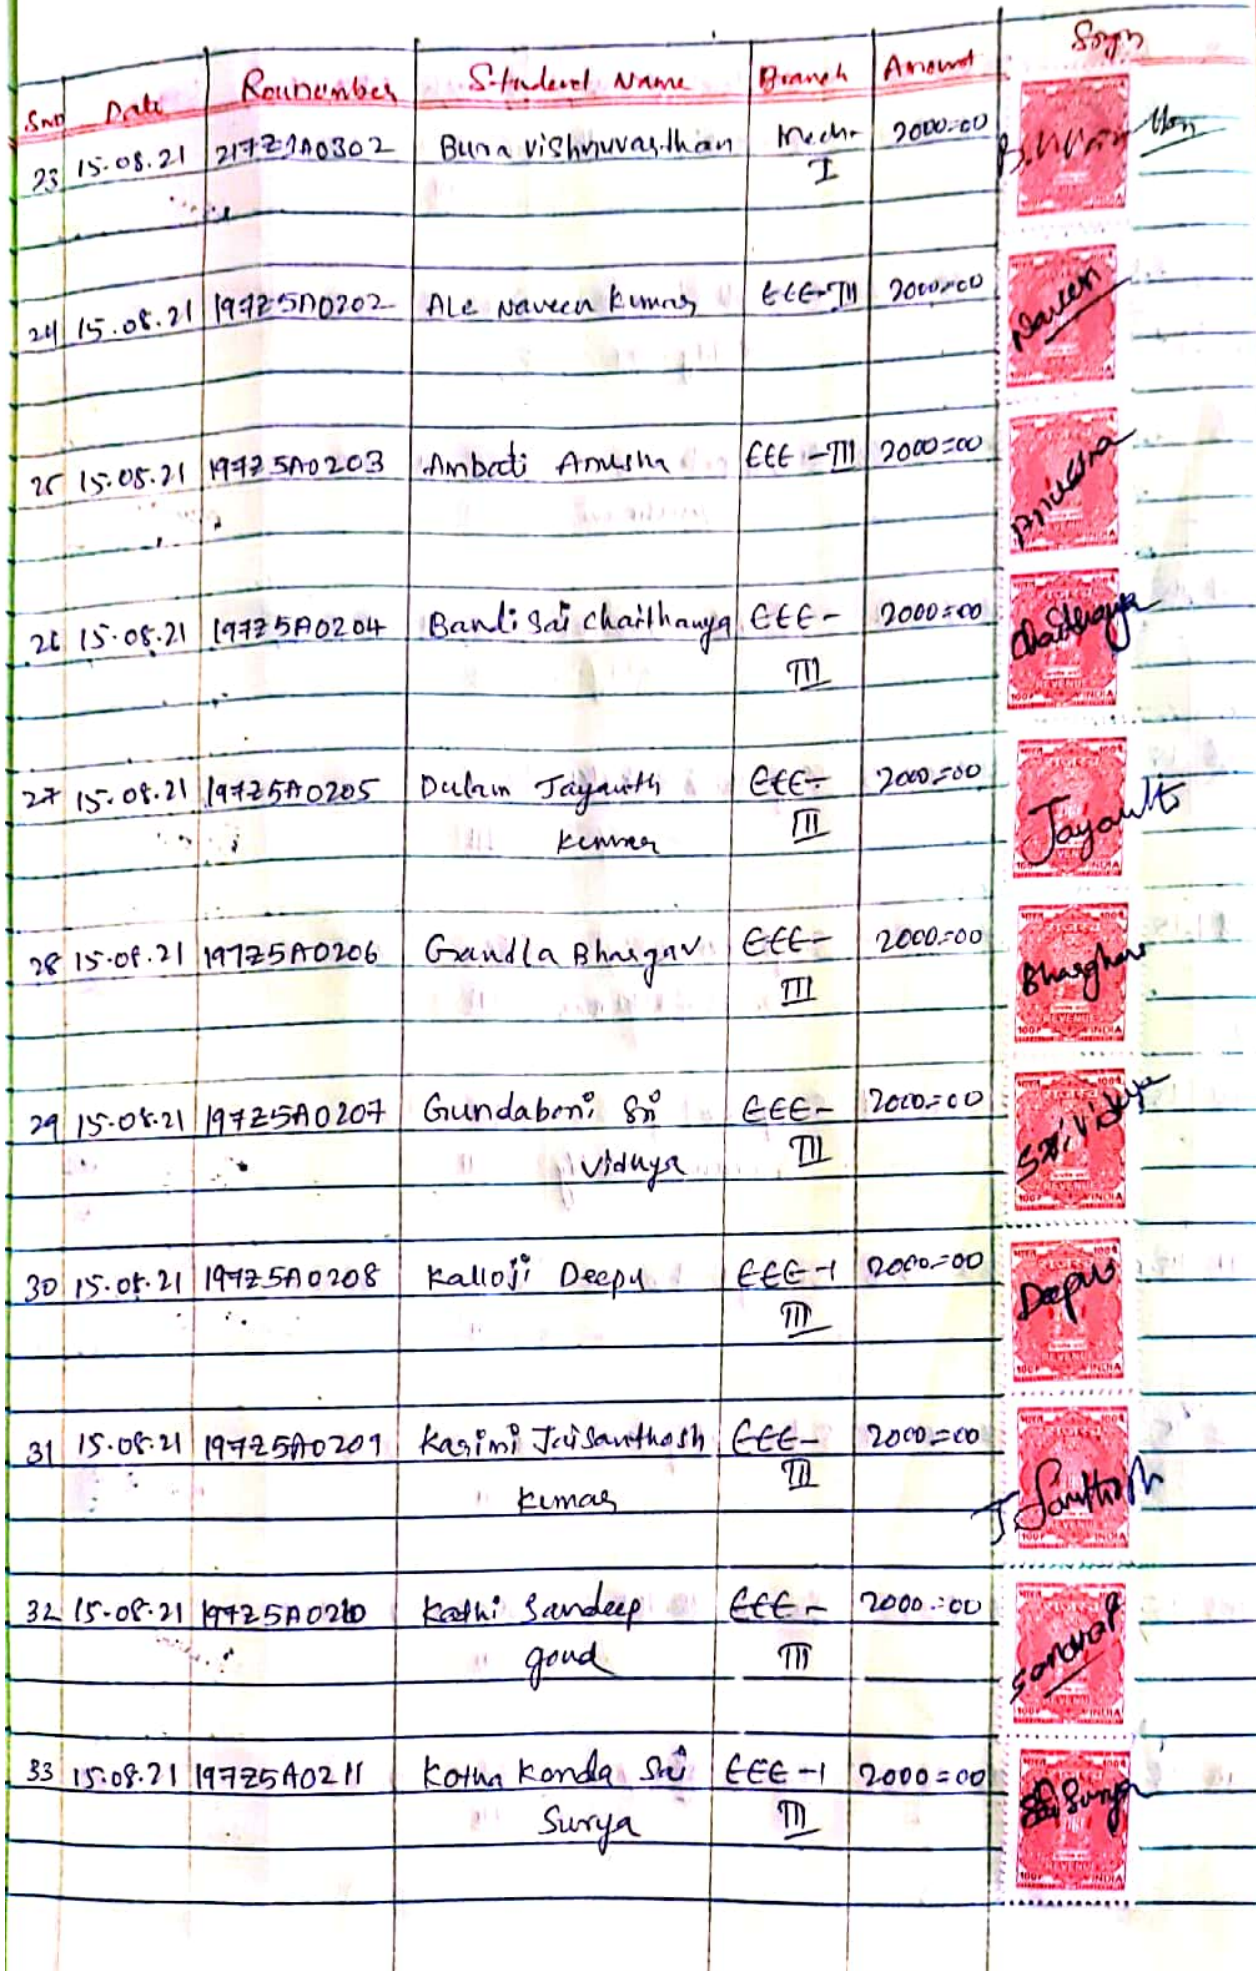 Sno Date Rounumber Student Name Branch Amount Sign
23 15.08.21 217Z1A0302 Bura vishnuvardhan Mech- 2000=00
I
24 15.08.21 197Z5A0202 Ale Naveen Kumar EEE-III 2000=00 Naveen
25 15.08.21 197Z5A0203 Ambati Anusha EEE-III 2000=00 Anusha
26 15.08.21 197Z5A0204 Bandi Sai Chaithanya EEE- 2000=00 Chaithanya
III
27 15.08.21 197Z5A0205 Dulam Jayanth EEE- 2000=00 Jayanth
Kumar III
28 15.08.21 197Z5A0206 Gandla Bhargav EEE- 2000=00 Bharghav
III
29 15.08.21 197Z5A0207 Gundaboni Sri EEE- 2000=00 Sri Vidya
Vidhya III
30 15.08.21 197Z5A0208 Kalloji Deepu EEE-I 2000=00 Deepu
III
31 15.08.21 197Z5A0209 Karimi Jaisanthosh EEE- 2000=00 J. Santhosh
Kumar III
32 15.08.21 197Z5A0210 Kathi Sandeep EEE- 2000=00 Sandeep
goud III
33 15.08.21 197Z5A0211 Kotha Konda Sai EEE-I 2000=00 Sai Surya
Surya III